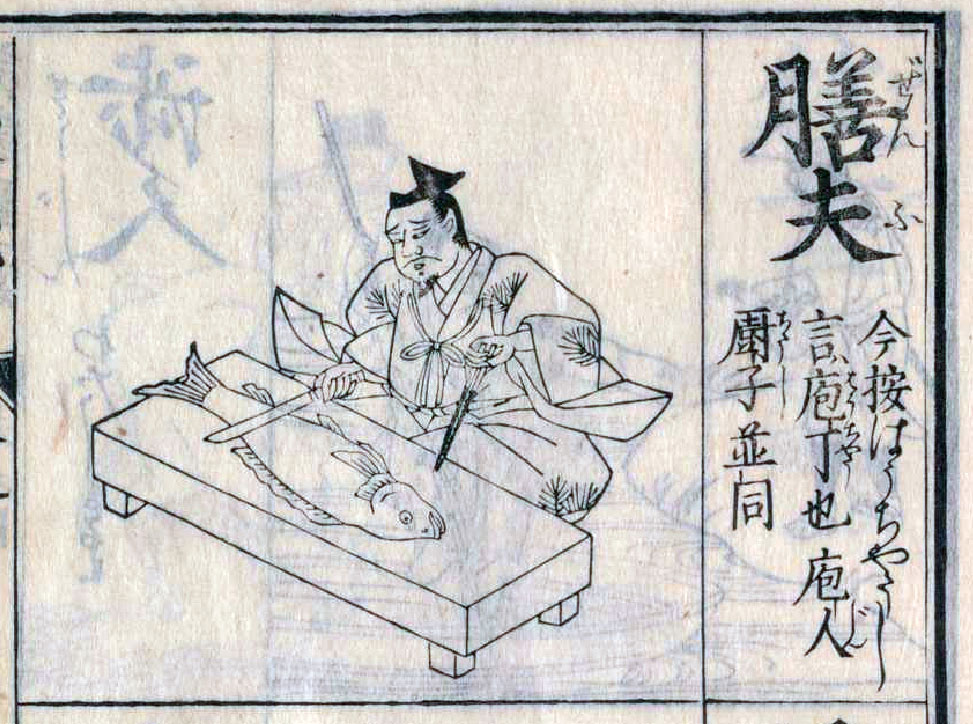 ぜんふ
膳夫
今按はうちやうし
言庖丁也庖人
じん
廚子並同